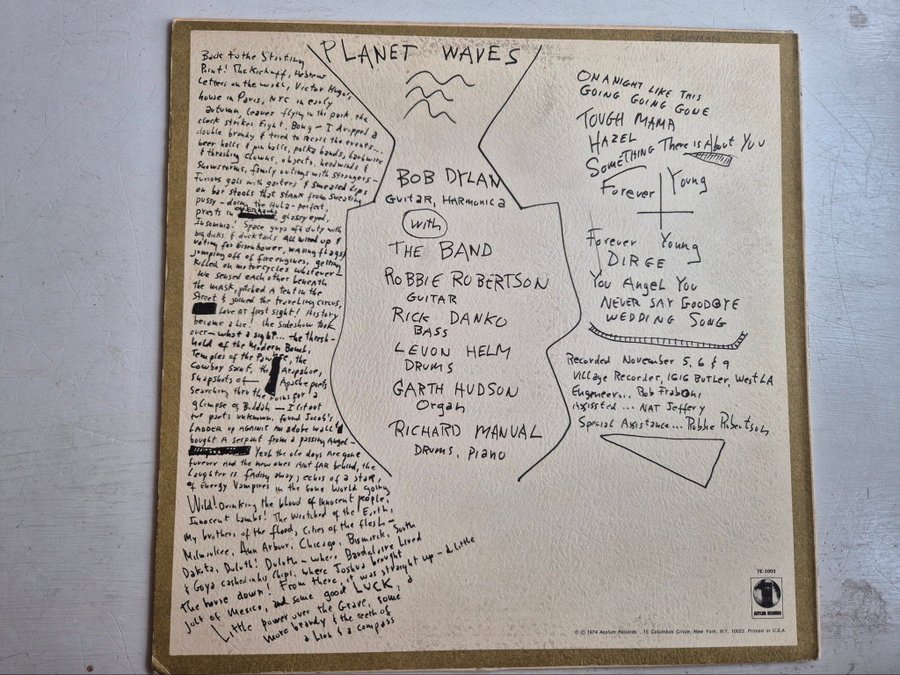 PLANET WAVES
Back to the Starting
Point! The Kickoff, Hebrew
letters on the wall, Victor Hugo's
house in Paris, NYC in early
autumn, leaves flying in the park, the
clock strikes Eight, Bong - I dropped a
double brandy & tried to recall the events...
beer halls & pin balls, polka bands, barbwire
& thrashing clowns, objects, headwinds &
snowstorms, family outings with strangers -
Furious gals with garters & smeared lips
on bar stools that stank from sweating
pussy - doing the Hula - perfect,
priests in overhauls, glassy eyed,
Insomnia! Space guys off duty with
big dicks & ducktails All wired up &
voting for Eisenhower, waving flags &
jumping off of fire engines, getting
killed on motorcycles whatever -
We sensed each other beneath
the mask, pitched a tent in the
Street & joined the traveling circus,
Love at first sight! History
became a Lie! the sideshow took
over - what a sight... the thresh-
hold of the Modern Bomb,
Temples of the Pawnee, the
Cowboy Saint, the Arapahoe,
snapshots of Apache poets
searching thru the ruins for a
glimpse of Buddah - I lit out
for parts unknown, found Jacob's
LADDER up AGAINST AN adobe wall &
bought A serpent from a passing Angel -
Yeah the ole days Are gone
forever And the new ones Aint fAR behind, the
Laughter is fAding away, echos of a star,
of Energy Vampires in the Gone World going
Wild! Drinking the blood of innocent people,
Innocent Lambs! The Wretched of the Earth,
My brothers of the flood, Cities of the flesh -
Milwaukee, Ann Arbor, Chicago, Bismarck, South
Dakota, Duluth! Duluth - where Baudelaire Lived
& Goya cashed in his Chips, where Joshua brought
the house down! From there, it was straight up - a little
jolt of Mexico, and some good LUCK, a
Little power over the Grave, some
more brandy & the teeth of
a Lion & a compass
BOB DYLAN
GUITAR, HARMONICA
with
THE BAND
ROBBIE ROBERTSON
GUITAR
RICK DANKO
BASS
LEVON HELM
DRUMS
GARTH HUDSON
Organ
RICHARD MANUAL
DRUMS, PIANO
ON A NIGHT LIKE THIS
GOING GOING GONE
TOUGH MAMA
HAZEL
SOMETHING There is About You
Forever Young
Forever Young
DIRGE
You Angel You
NEVER SAY GOODBYE
WEDDING SONG
Recorded November 5, 6 & 9
Village Recorder, 1616 Butler, West LA
Engeneer... Rob Fraboni
Assisted... NAT Jeffery
Special Assistance... Robbie Robertson
7E-1003
ASYLUM RECORDS
© ℗ 1974 Asylum Records. 15 Columbus Circle, New York, N.Y. 10023. Printed in U.S.A.